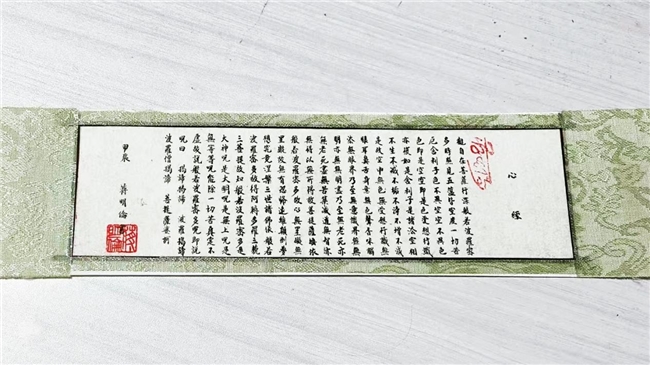 心經
觀自在菩薩行深般若波羅蜜
多時照見五蘊皆空度一切苦
厄舍利子色不異空空不異色
色即是空空即是色受想行識
亦復如是舍利子是諸法空相
不生不滅不垢不淨不增不減
是故空中無色無受想行識無
眼耳鼻舌身意無色聲香味觸
法無眼界乃至無意識界無無
明亦無無明盡乃至無老死亦
無老死盡無苦集滅道無智亦
無得以無所得故菩提薩埵依
般若波羅蜜多故心無罣礙無
罣礙故無有恐怖遠離顛倒夢
想究竟涅槃三世諸佛依般若
波羅蜜多故得阿耨多羅三藐
三菩提故知般若波羅蜜多是
大神咒是大明咒是無上咒是
無等等咒能除一切苦真實不
虛故說般若波羅蜜多咒即說
咒曰 揭諦揭諦 波羅揭諦
波羅僧揭諦 菩提薩婆訶
甲辰 蔣明倫